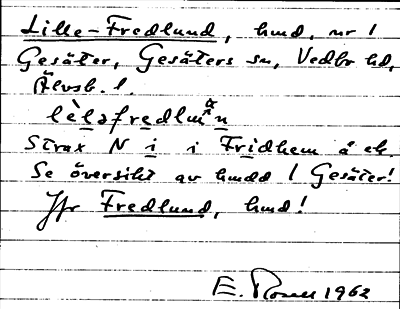 Lille-Fredlund, hmd, nr 1
Gesäter, Gesäters sn, Vedbo hd,
Älvsb. l.
lèləfredlun
Strax N i i Fridhem å ek.
Se översikt av hmdd / Gesäter!
Jfr Fredlund, hmd!
E. Rosell 1962